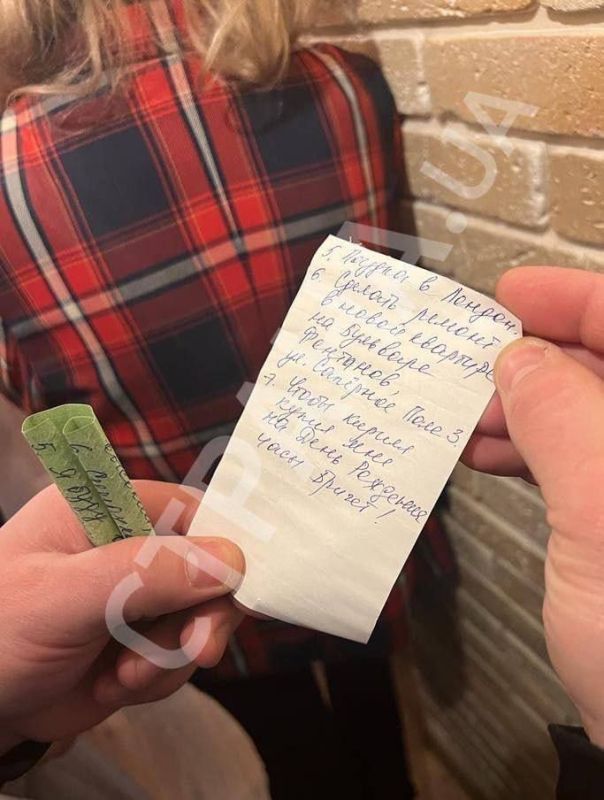 5. Поездка в Лондон.
6. Сделать ремонт
в новой квартире
на Бульваре
Фонтанов,
ул. Сапёрное Поле 3.
7. Чтобы Кирилл
купил мне
на День Рождения
часы Бригет!
5. Я
6.
СТРАНА.UA